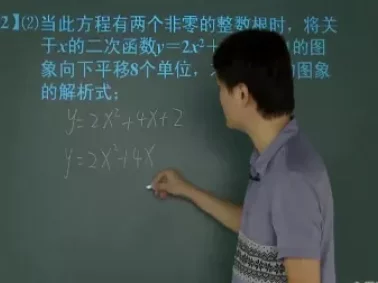 2】⑵当此方程有两个非零的整数根时,将关
于x的二次函数y=2x²+ 的图
象向下平移8个单位, 图象
的解析式;
y=2x²+4x+2
y=2x²+4x